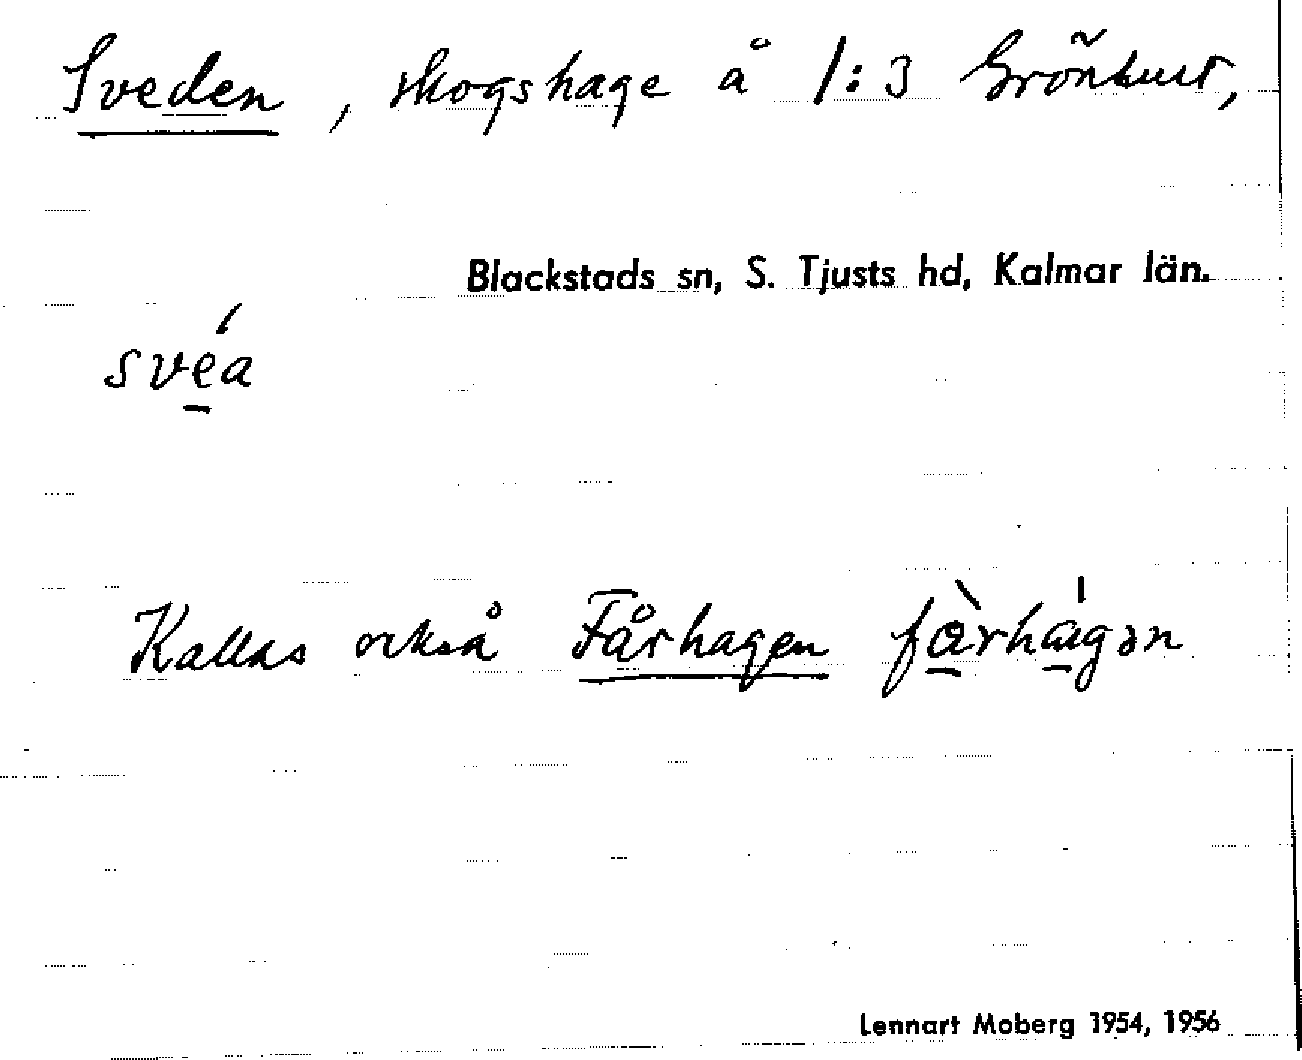 Sveden, skogshage å 1:3 Grönhult,
Blackstads sn, S. Tjusts hd, Kalmar län.
svéa
Kallas också Fårhagen
Lennart Moberg 1954, 1956